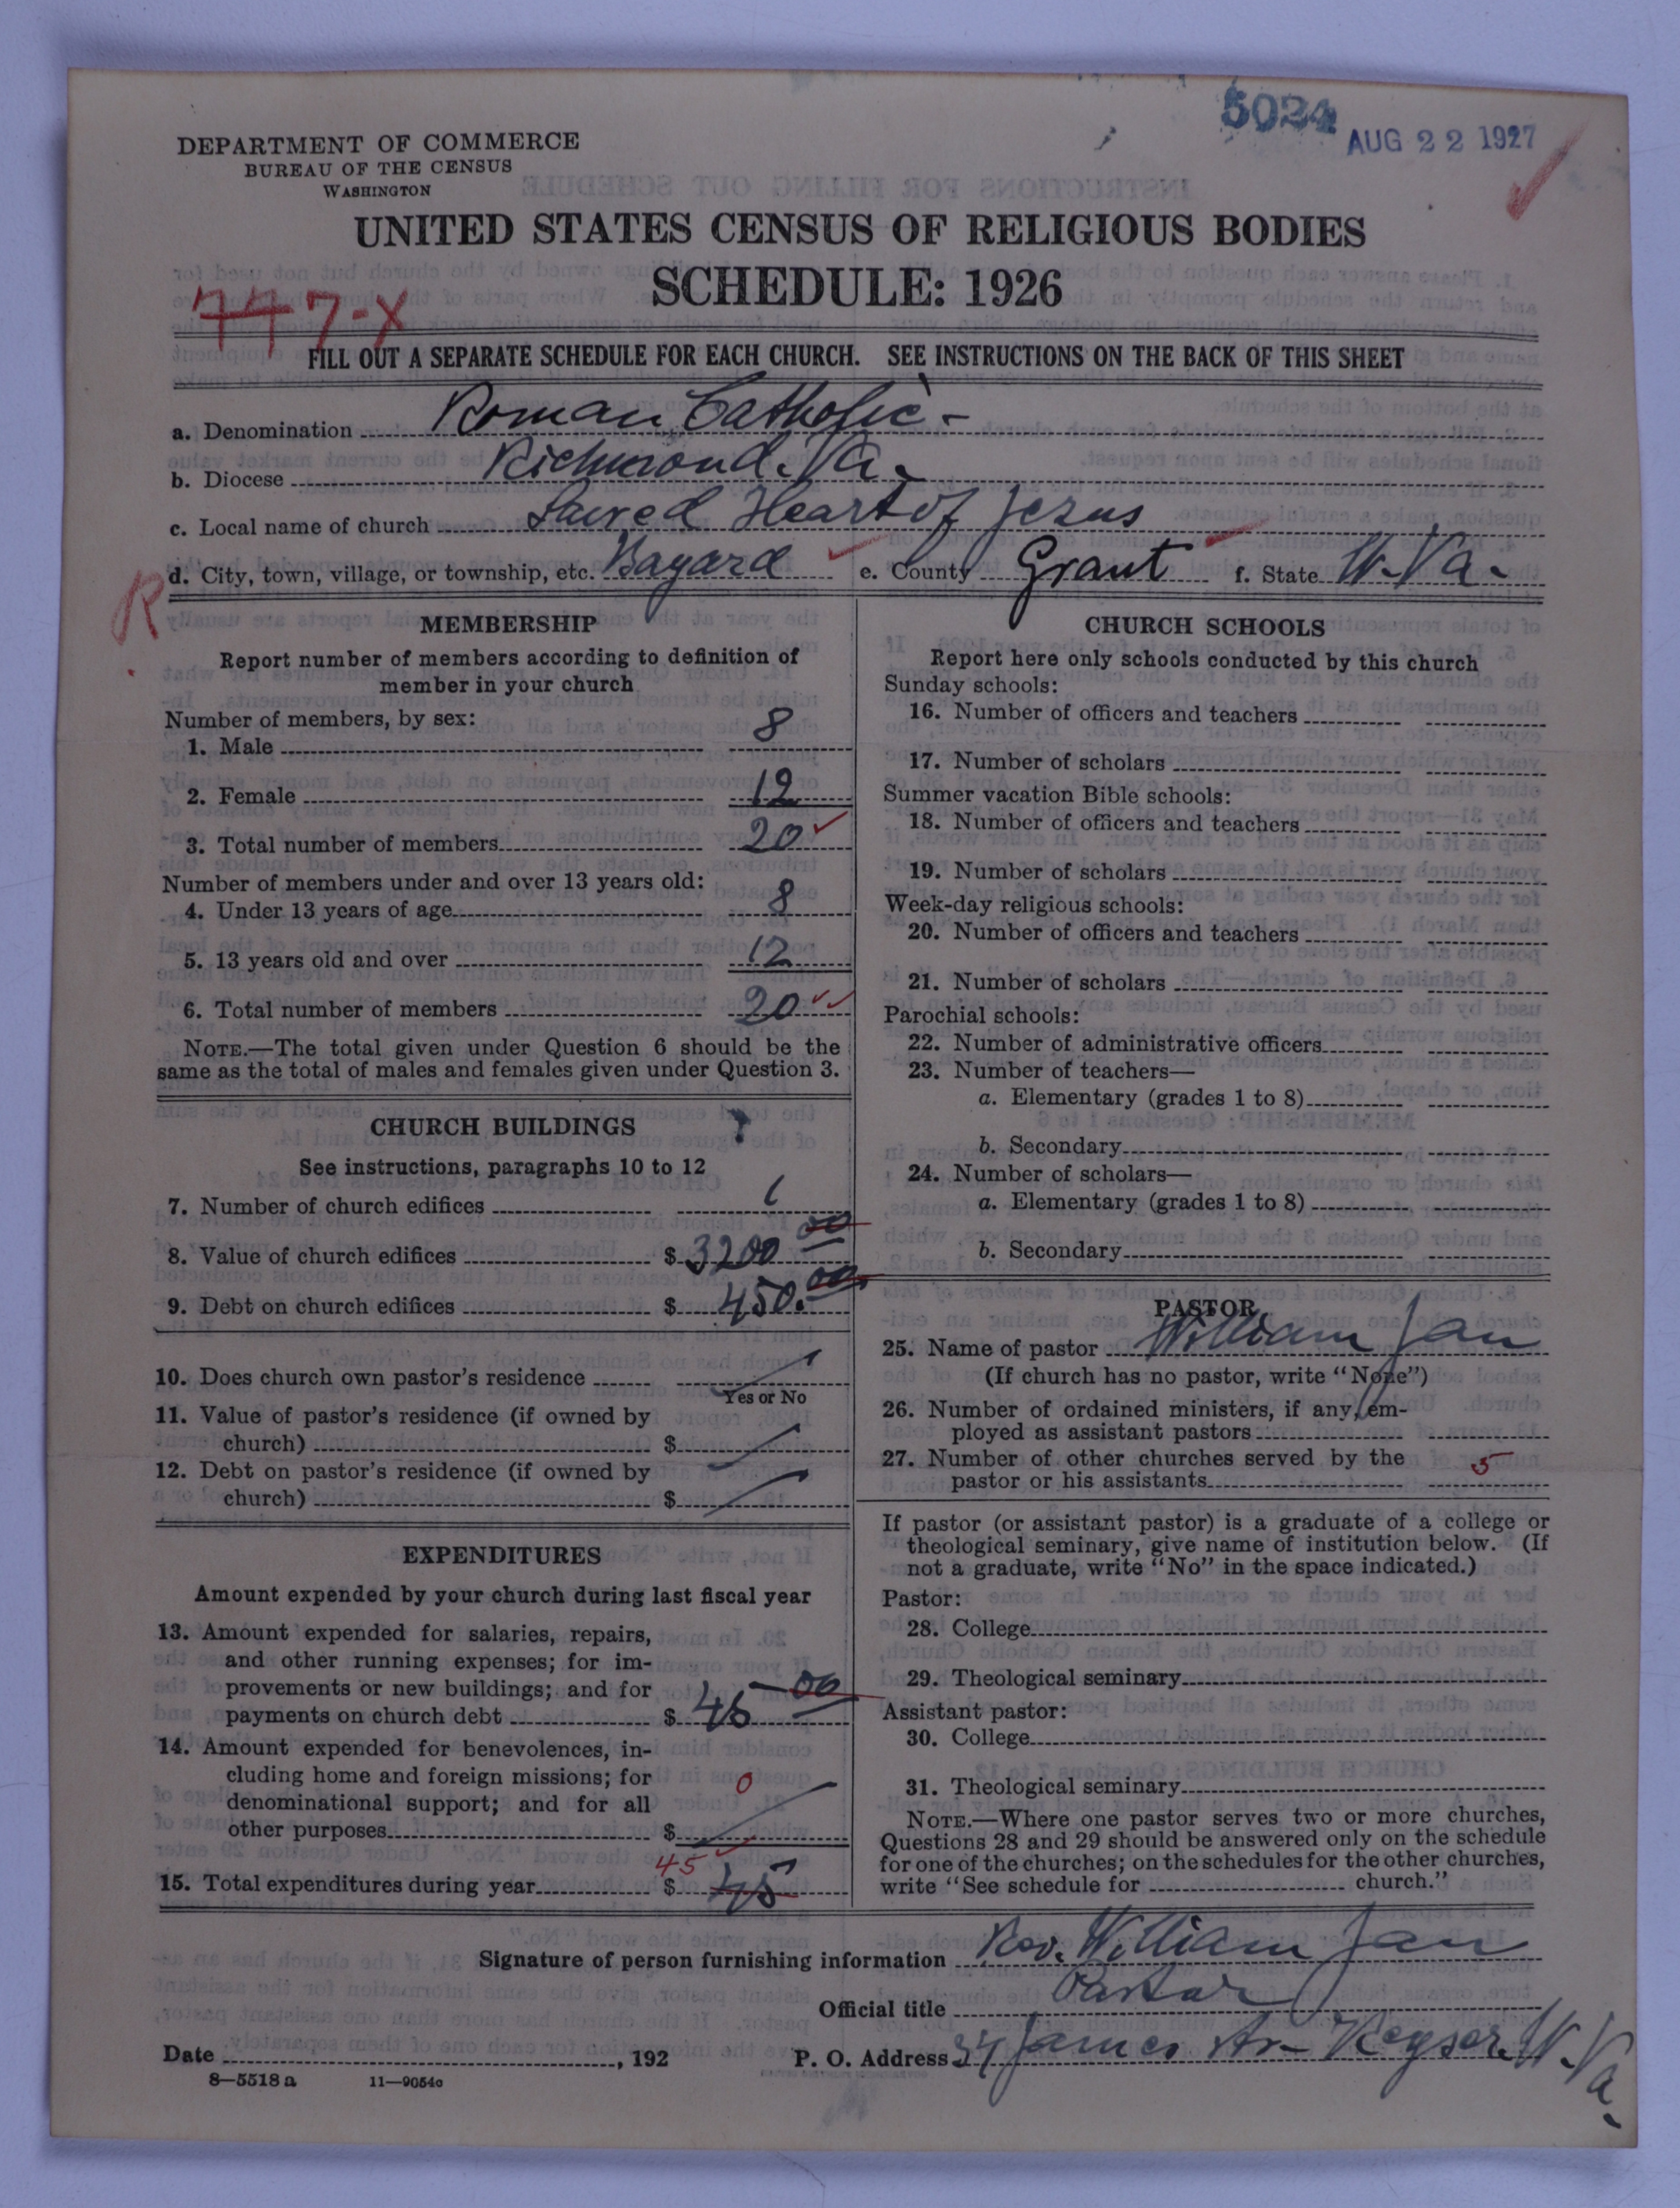 5024
AUG 22 1927
DEPARTMENT OF COMMERCE
BUREAU OF THE CENSUS
WASHINGTON
UNITED STATES CENSUS OF RELIGIOUS BODIES
SCHEDULE: 1926
777-X
FILL OUT A SEPARATE SCHEDULE FOR EACH CHURCH. SEE INSTRUCTIONS ON THE BACK OF THIS SHEET
a. Denomination Roman Catholic -
b. Diocese Richmond. Va.
c. Local name of church Sacred Heart of Jezus
d. City, town, village, or township, etc. Bayard e. County Grant f. State W. Va.
R
MEMBERSHIP
Report number of members according to definition of
member in your church
Number of members, by sex:
1. Male 8
2. Female 12
3. Total number of members 20
Number of members under and over 13 years old:
4. Under 13 years of age 8
5. 13 years old and over 12
6. Total number of members 20
NOTE.—The total given under Question 6 should be the
same as the total of males and females given under Question 3.
CHURCH BUILDINGS
See instructions, paragraphs 10 to 12
7. Number of church edifices 1
8. Value of church edifices $ 3200 00
9. Debt on church edifices $ 450. 00
10. Does church own pastor's residence
Yes or No
11. Value of pastor's residence (if owned by
church) $
12. Debt on pastor's residence (if owned by
church) $
EXPENDITURES
Amount expended by your church during last fiscal year
13. Amount expended for salaries, repairs,
and other running expenses; for im-
provements or new buildings; and for
payments on church debt $ 45 00
14. Amount expended for benevolences, in-
cluding home and foreign missions; for
denominational support; and for all
other purposes $ 0
15. Total expenditures during year $ 45 45
CHURCH SCHOOLS
Report here only schools conducted by this church
Sunday schools:
16. Number of officers and teachers
17. Number of scholars
Summer vacation Bible schools:
18. Number of officers and teachers
19. Number of scholars
Week-day religious schools:
20. Number of officers and teachers
21. Number of scholars
Parochial schools:
22. Number of administrative officers
23. Number of teachers—
a. Elementary (grades 1 to 8)
b. Secondary
24. Number of scholars—
a. Elementary (grades 1 to 8)
b. Secondary
PASTOR
25. Name of pastor William Jan
(If church has no pastor, write "None")
26. Number of ordained ministers, if any, em-
ployed as assistant pastors
27. Number of other churches served by the
pastor or his assistants 5
If pastor (or assistant pastor) is a graduate of a college or
theological seminary, give name of institution below. (If
not a graduate, write "No" in the space indicated.)
Pastor:
28. College
29. Theological seminary
Assistant pastor:
30. College
31. Theological seminary
NOTE.—Where one pastor serves two or more churches,
Questions 28 and 29 should be answered only on the schedule
for one of the churches; on the schedules for the other churches,
write "See schedule for church."
Signature of person furnishing information Rev. William Jan
Official title Pastor
Date , 192 P. O. Address 34 James Av- Keyser W. Va.
8—5518 a 11—9054c